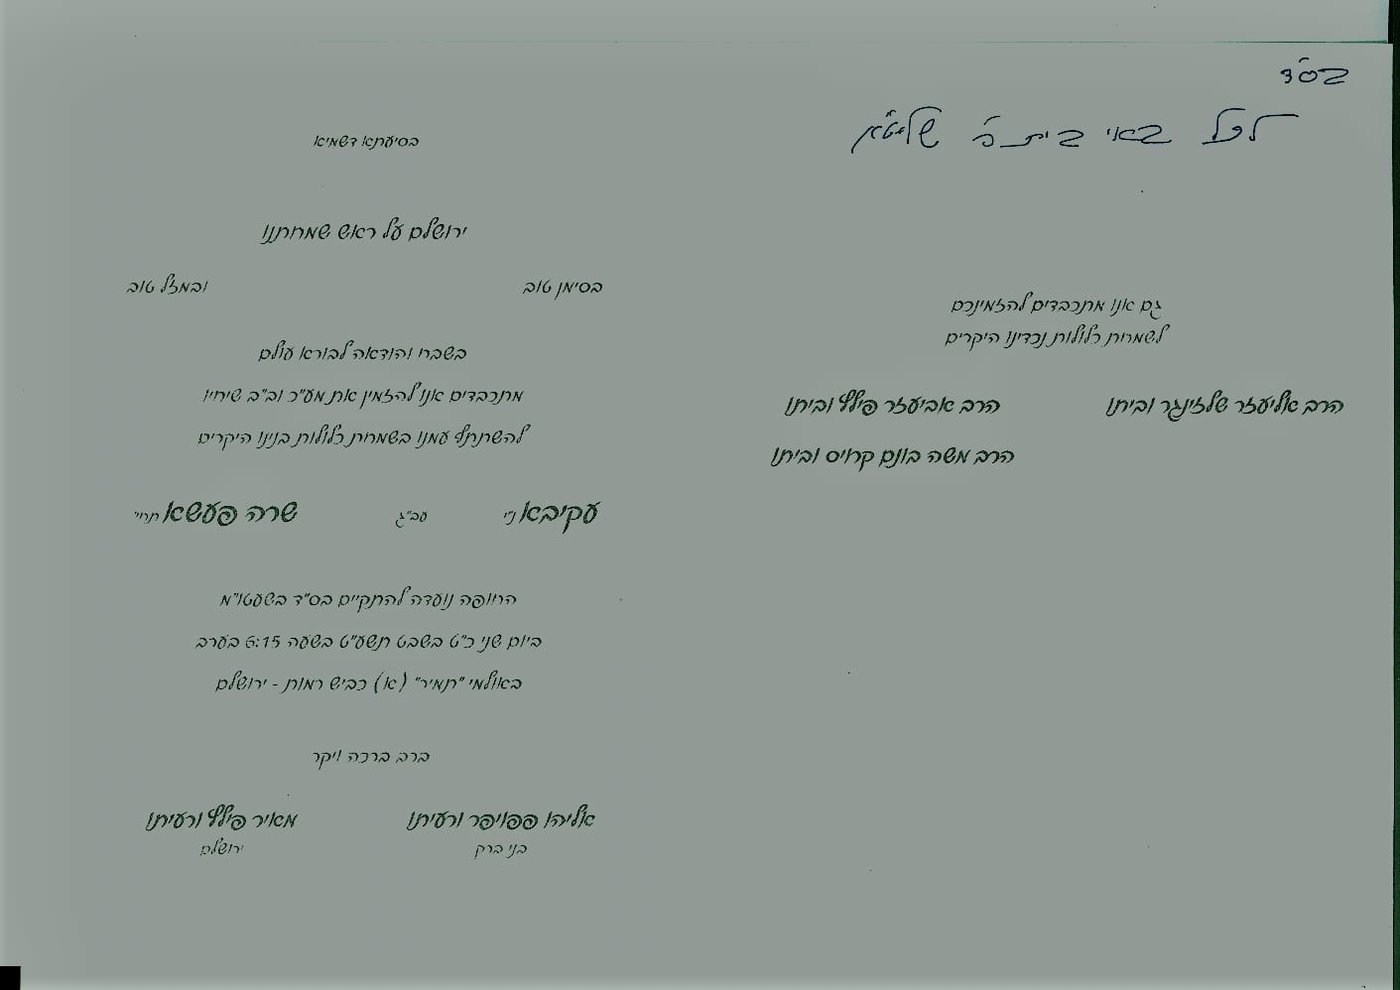 בס"ד
לכל באי ביתכ' שליט"א
גם אנו מתכבדים להזמינכם
לשמחת כלולות נכדינו היקרים
הרב אליעזר שלזינגר וביתו
הרב אביעזר פילץ וביתו
הרב משה בונם קרויס וביתו
בסיעתא דשמיא
ירושלם על ראש שמחתנו
בסימן טוב
ובמזל טוב
בשבח והודאה לבורא עולם
מתכבדים אנו להזמין את מע"כ וב"ב שיחיו
להשתתף עמנו בשמחת כלולות בנינו היקרים
עקיבא ני'
עב"ג
שרה פעשא תחי'
החופה נועדה להתקיים בס"ד בשעטו"מ
ביום שני כ"ט בשבט תשע"ט בשעה 6:15 בערב
באולמי "תמיר" (א) כביש רמות - ירושלם
ברב ברכה ויקר
אליהו פפויפר ורעיתו
בני ברק
מאיר פילץ ורעיתו
ירושלם